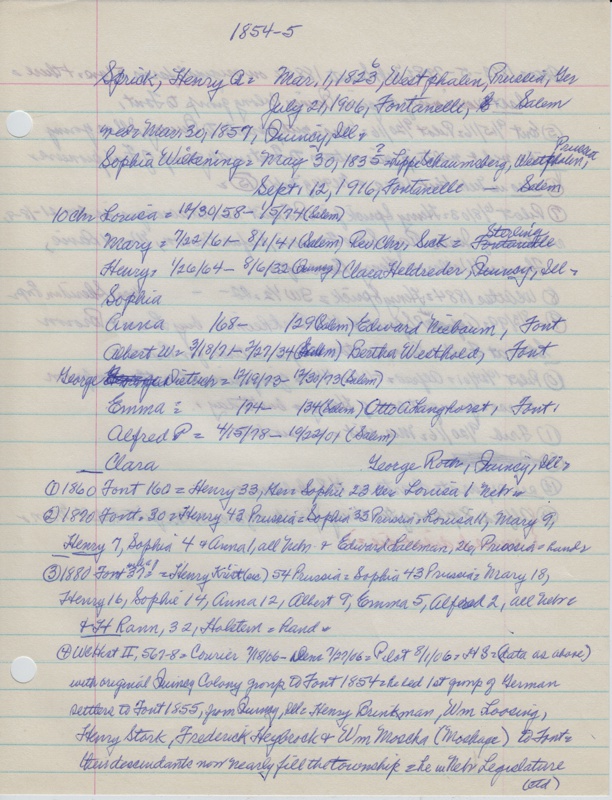 1854-5
Sprick, Henry A = Mar, 1, 1823 6, Westphalin, Prussia, Ger
July 21, 1906, Fontanelle, Salem
m = Mar, 30, 1857, Quincy, Ill =
Prussia
Sophia Wilkening = May 30, 1835 ? = Lippe Schaumberg, Westphalin,
Sept, 12, 1916, Fontanelle — Salem
10 Chn Louisa = 12/30/58 - 1/5/74 (Salem)
Sterling
Mary = 7/22/61 - 8/1/41 (Salem) Rev Chr, Sick = Fontanelle
Henry = 1/26/64 - 8/6/32 (Quincy) Clara Heldreder, Quincy, Ill =
Sophia
Anna /68- /29 (Salem) Edward Niebaum, Font
Albert W = 3/18/71 - 2/27/34 (Salem) Bertha Westhold, Font
George Dietrich = 12/19/73 - 12/30/73 (Salem)
Emma = /74 - /34 (Salem) Otto A Langhorst, Font,
Alfred P = 4/15/78 - 10/22/01 (Salem)
Clara George Roth, Quincy, Ill =
① 1860 Font 160 = Henry 33, Ger = Sophie 23 Ger Louisa 1 Nebr =
② 1870 Font, 30 = Henry 43 Prussia = Sophia 33 Prussia = Louisa 11, Mary 9,
Henry 7, Sophia 4 & Anna 1, all Nebr & Edward Fallman, 26, Prussia = hand =
③ 1880 Font = Henry 54 Prussia = Sophia 43 Prussia = Mary 18,
Henry 16, Sophie 14, Anna 12, Albert 9, Emma 5, Alfred 2, all Nebr =
& H Rann, 32, Holstein = hand =
④ We Hist II, 567-8 = Courier 7/18/06 - Dem 7/27/06 = Pilot 8/1/06 = HS = (data as above)
with original Quincy Colony group to Font 1854 = he led 1st group of German
settlers to Font 1855, from Quincy, Ill = Henry Brinkman, Wm Loosing,
Henry Stork, Frederick Heybrock & Wm Moscha (Moshage) to Font =
their descendants now nearly fill the township = he in Nebr Legislature